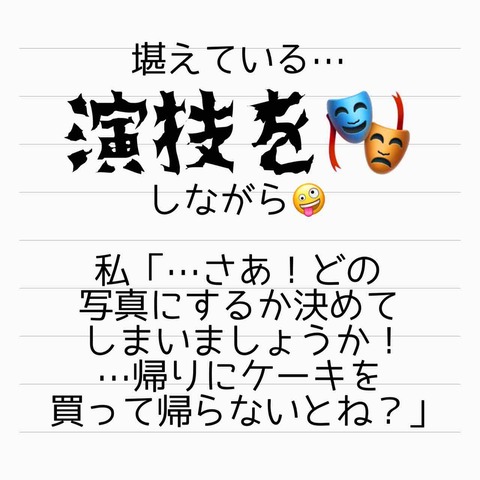 堪えている…
演技を🎭
しながら🤪
私「…さあ！どの
写真にするか決めて
しまいましょうか！
…帰りにケーキを
買って帰らないとね？」